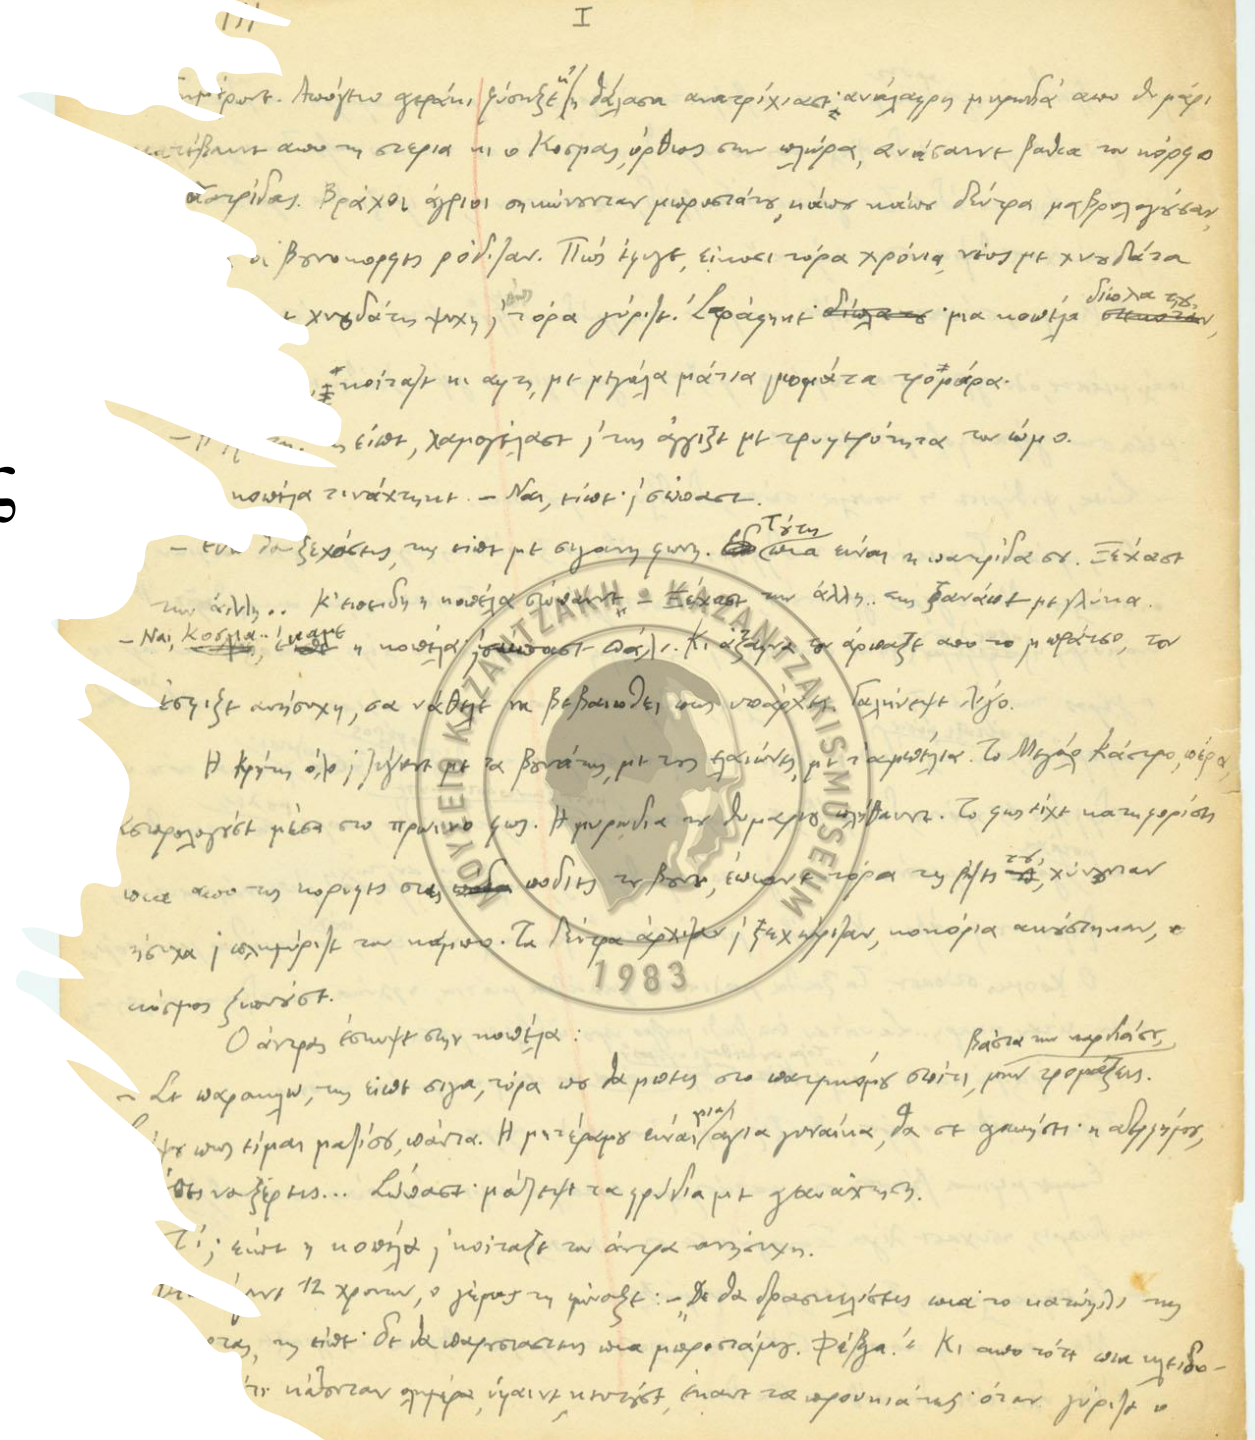 I
Απόγειο αεράκι φύσηξε κ' η θάλασα ανατρίχιασε· ανάλαφρη μυρωδιά απο θυμάρι
κατέβαινε απο τη στεριά κι ο Κοσμάς, όρθιος στην πλώρα, ανάσαινε βαθιά τον κόρφο
πατρίδας. Βράχοι άγριοι σηκώνουνταν μπροστάτου, κάπου κάπου δέντρα μαβρολογούσαν,
οι βουνοκορφές ρόδιζαν. Πώς έφυγε, είκοσι τόρα χρόνια, νέος με χνουδάτα
χνουδάτη ψυχή, τόρα γύριζε! Στράφηκε· μια κοπέλα δίπλα του,
κοίταζε κι αφτή, με μεγάλα μάτια γιομάτα τρομάρα.
είπε, χαμογέλασε, της άγγιξε με τρυφερότητα τον ώμο.
κοπέλα τινάχτηκε. – Ναι, είπε· σώπασε.
– θα ξεχάσεις, της είπε με σιγανή φωνή. Τούτη πια είναι η πατρίδα σου. Ξέχασε
την άλλη.. Κ' επειδή η κοπέλα σώπαινε – Ξέχασε την άλλη.. της ξανάπε με γλύκα.
– Ναι, Κοσμά.. έκαμε η κοπέλα πάλι. Κι άξαφνα τον άρπαξε απο το μπράτσο, τον
έσφιξε ανήσυχη, σα νάθελε να βεβαιωθεί πως υπάρχει. Γαλήνεψε λίγο.
Η Κρήτη όλο ζύγωνε με τα βουνάτης, με τους ελαιώνες, με τ' αμπέλια. Το Μεγάλο Κάστρο, πέρα,
ασπρολογούσε μέσα στο πρωινό φως. Η μυρωδιά του θυμαριού πλήθαινε. Το φως είχε κατηφορίσει
πια απο τις κορυφές στις ποδιές του βουνού, έπιανε τόρα τις ρίζες του, χύνουνταν
ήσυχα πλημύριζε τον κάμπο. Τα δέντρα άρχιζαν ξεχώριζαν, κοκόρια ακούστηκαν, ο
κόσμος ξυπνούσε.
Ο άντρας έσκυψε στην κοπέλα:
– Σε παρακαλώ, της είπε σιγά, τόρα που θα μπεις στο πατρικόμου σπίτι, βάστα την καρδιάσου, μην τρομάξεις.
πως είμαι μαζίσου, πάντα. Η μητέραμου είναι μια άγια γυναίκα, θα σε αγαπήσει· η αδερφήμου,
να ξέρεις... Σώπασε· μάζεψε τα φρύδια με αγανάχτηση.
Τί; είπε η κοπέλα κοίταξε τον άντρα ανήσυχη.
12 χρονών, ο γέρος τη φώναξε: – Δε θα δρασκελίσεις πια το κατώφλι της
της είπε· δε θα παρουσιαστείς πια μπροστάμου. Φέβγα! Κι απο τότε πια κλειδο-
κάθουνταν ολημέρα, ύφαινε, κεντούσε, έκανε τα προυκιάτης· όταν γύριζε ο